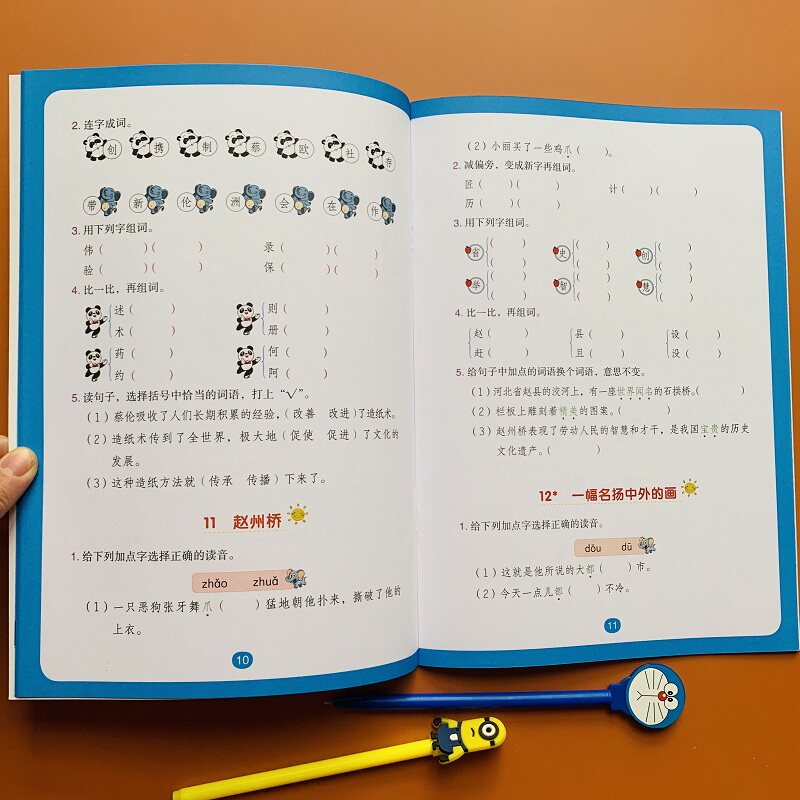 2. 连字成词。
创 携 制 蔡 欧 社 存
带 新 伦 洲 会 在 作
3. 用下列字组词。
伟（ ）（ ） 录（ ）（ ）
验（ ）（ ） 保（ ）（ ）
4. 比一比，再组词。
述（ ） 则（ ）
术（ ） 册（ ）
药（ ） 何（ ）
约（ ） 阿（ ）
5. 读句子，选择括号中恰当的词语，打上“√”。
（1）蔡伦吸收了人们长期积累的经验，（改善 改进）了造纸术。
（2）造纸术传到了全世界，极大地（促使 促进）了文化的
发展。
（3）这种造纸方法就（传承 传播）下来了。
11 赵州桥
1. 给下列加点字选择正确的读音。
zhǎo zhuǎ
（1）一只恶狗张牙舞爪（ ）猛地朝他扑来，撕破了他的
上衣。
10
（2）小丽买了一些鸡爪（ ）。
2. 减偏旁，变成新字再组词。
匠（ ）（ ） 计（ ）（ ）
历（ ）（ ）
3. 用下列字组词。
省（ ）（ ） 史（ ）（ ） 创（ ）（ ）
举（ ）（ ） 智（ ）（ ） 慧（ ）（ ）
4. 比一比，再组词。
赵（ ） 县（ ） 设（ ）
赶（ ） 且（ ） 没（ ）
5. 给句子中加点的词语换个词语，意思不变。
（1）河北省赵县的洨河上，有一座世界闻名的石拱桥。（ ）
（2）栏板上雕刻着精美的图案。（ ）
（3）赵州桥表现了劳动人民的智慧和才干，是我国宝贵的历史
文化遗产。（ ）
12* 一幅名扬中外的画
1. 给下列加点字选择正确的读音。
dōu dū
（1）这就是他所说的大都（ ）市。
（2）今天一点儿都（ ）不冷。
11